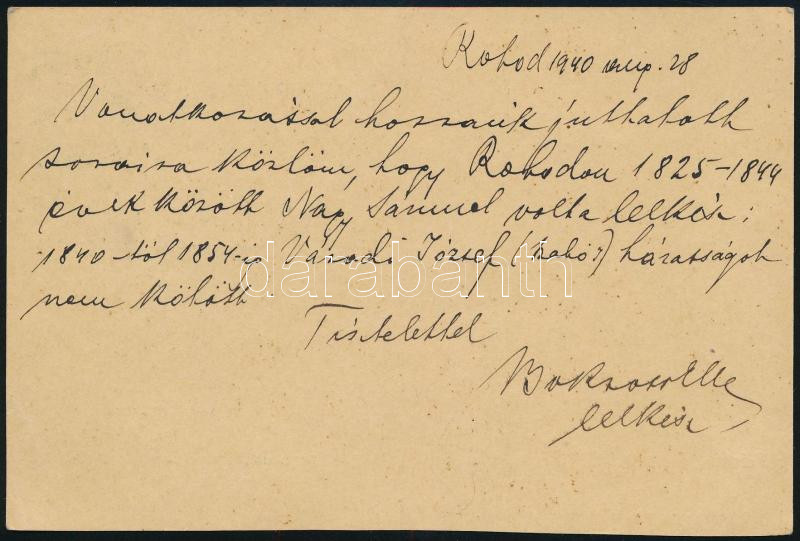 Rohod 1940 aug. 28
Vonatkozással hozzánk juttatott
soraira közlöm, hogy Rohodon 1825-1844
évek között Nagy Sámuel volt a lelkész;
1840-től 1854-ig Váradi József (Szabó?) házasságot
nem kötött.
Tisztelettel
lelkész
darabanth